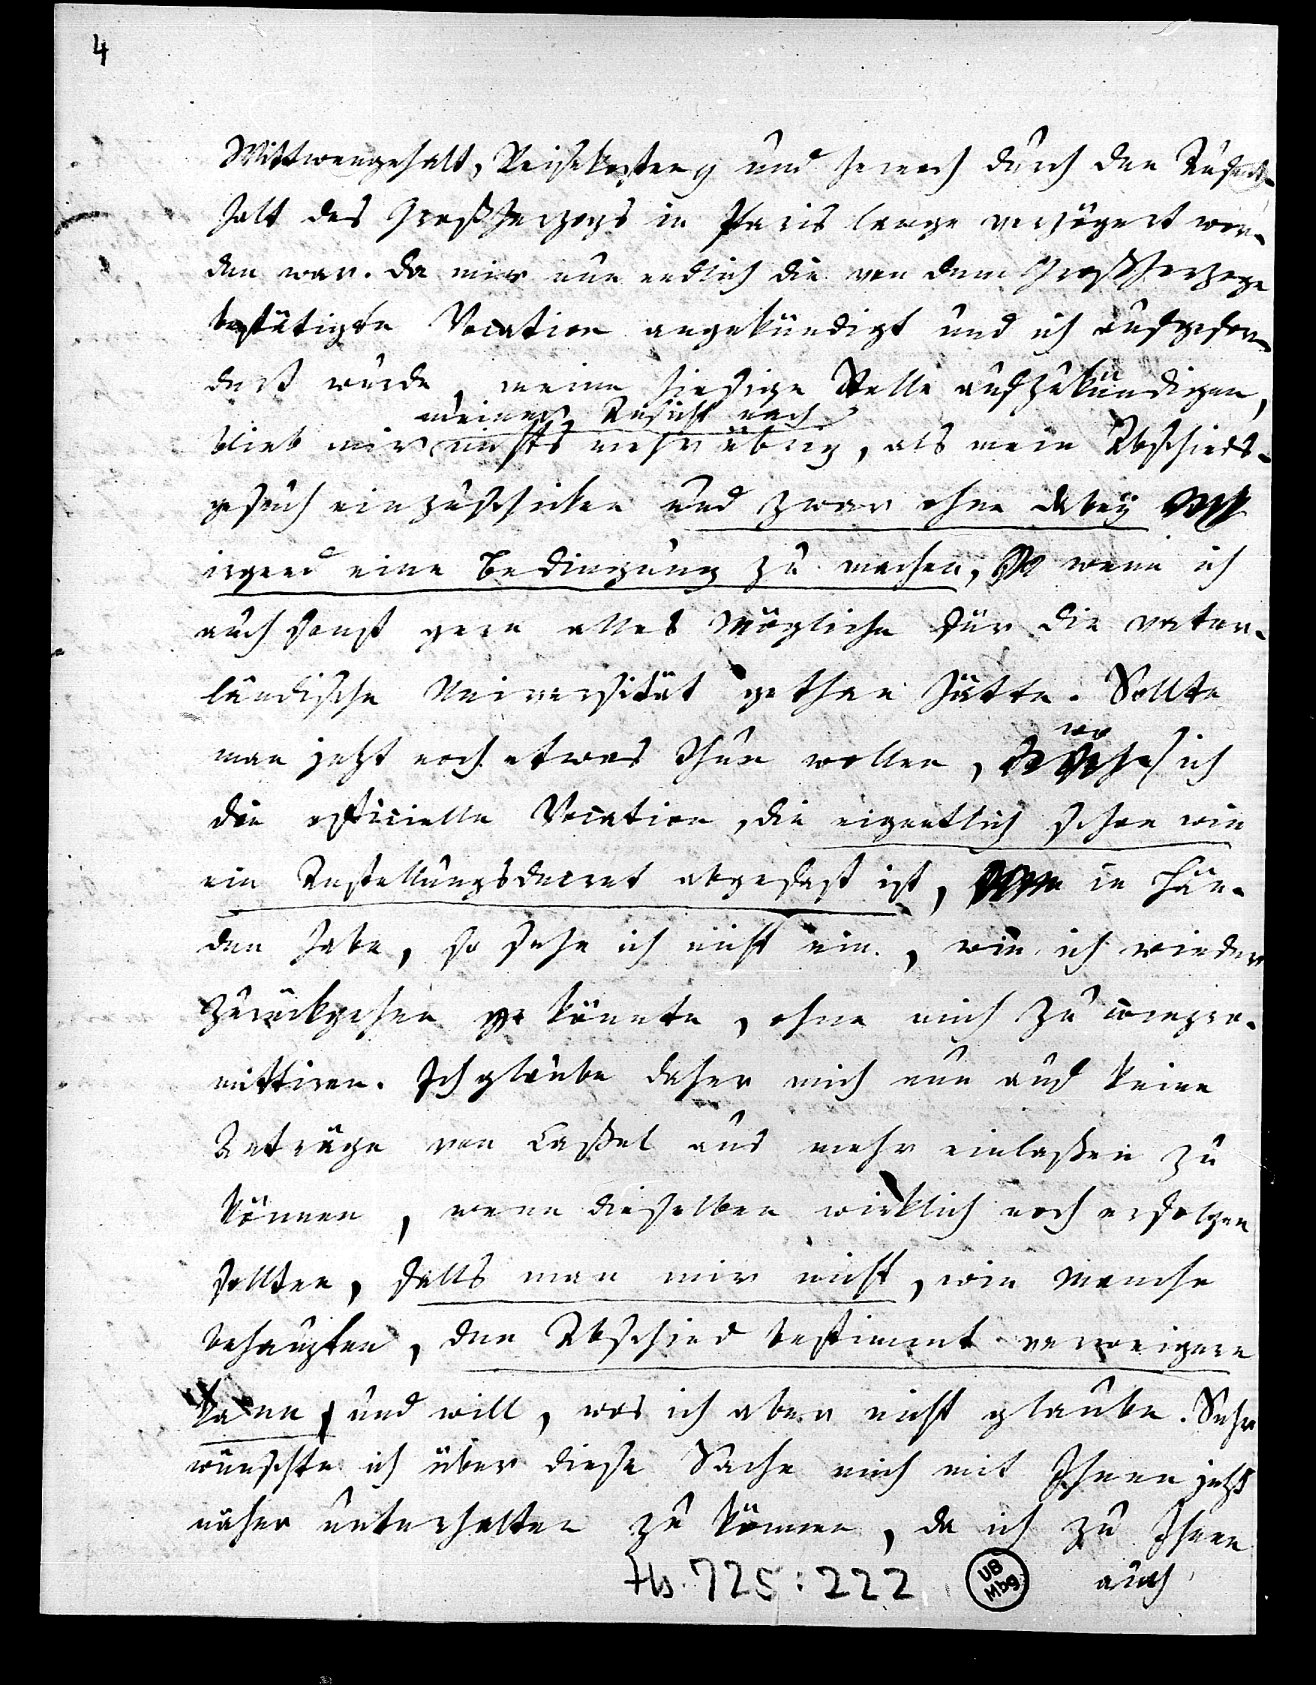 4
Wittwengehalt, Reisekosten und hernach durch den Aufent-
halt des Großherzogs in Paris lange verzögert wor-
den war. Da mir nun endlich die von dem Großherzoge
bestätigte Vocation angekündigt und ich aufgefor-
dert wurde, meine hiesige Stelle aufzukündigen,
meiner Ansicht nach
blieb mir nichts mehr übrig, als mein Abschieds-
gesuch einzuschicken und zwar ohne dabey
irgend eine Bedingung zu machen, wenn ich
auch sonst gern alles Mögliche für die vater-
ländische Universität gethan hätte. Sollte
man jetzt noch etwas thun wollen, wo ich
die officielle Vocation, die eigentlich schon wie
ein Anstellungsdecret abgefaßt ist, in Hän-
den habe, so sehe ich nicht ein, wie ich wieder
zurückgehen könnte, ohne mich zu compro-
mittiren. Ich glaube daher mich nun auf keine
Anträge von Cassel aus mehr einlaßen zu
können, wenn dieselben wirklich noch erfolgen
sollten, falls man mir nicht, wie Manche
behaupten, den Abschied bestimmt verweigern
kann und will, was ich aber nicht glaube. Sehr
wünschte ich über diese Sache mich mit Ihnen jetzt
näher unterhalten zu können, da ich zu Ihnen
auch
Hs. 725:222
UB
Mbg